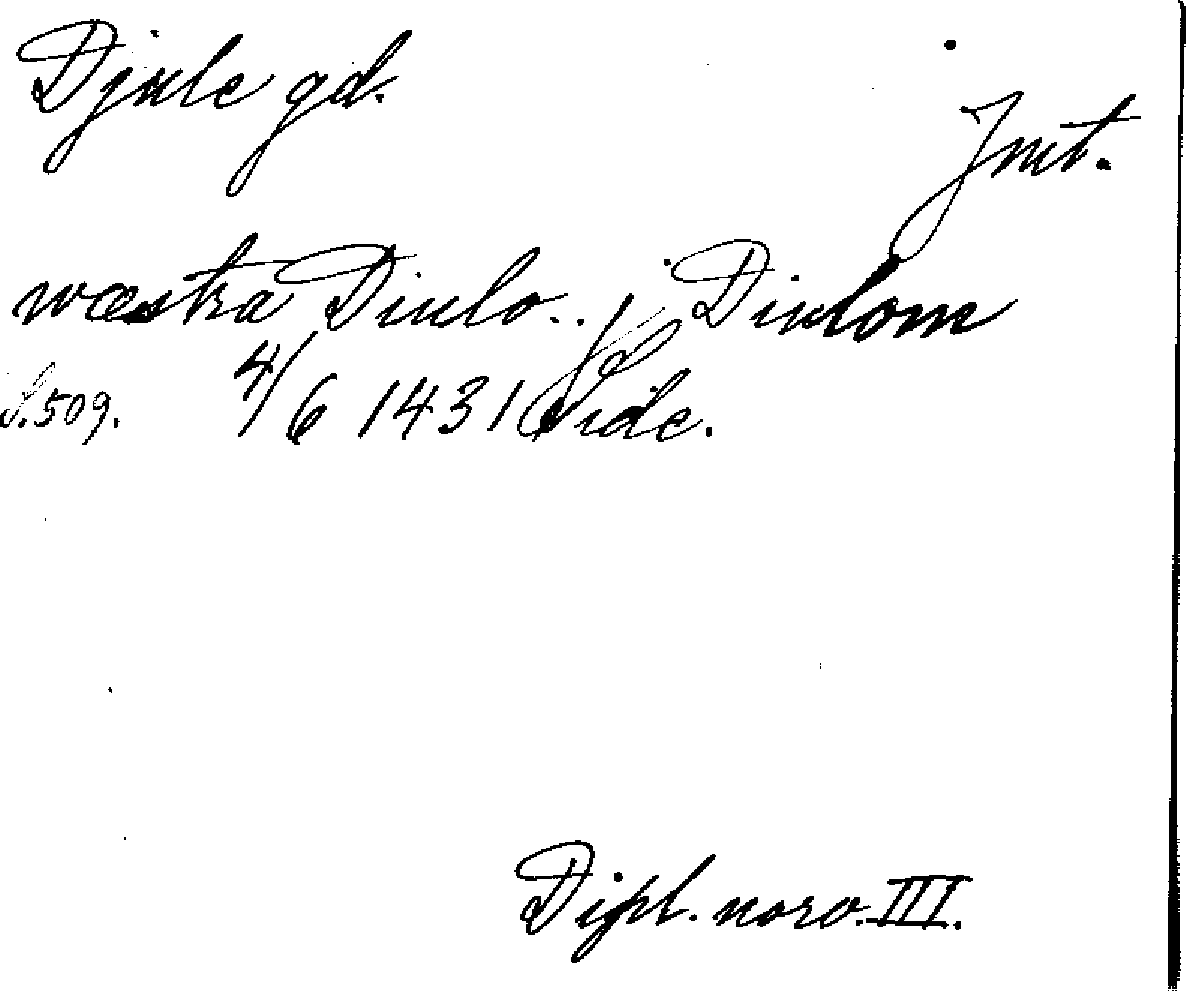 Djule gd.
Jmt.
wæstra Diulo.. i Diulom
S.509. 4/6 1431 Lide.
Dipl. norv. III.